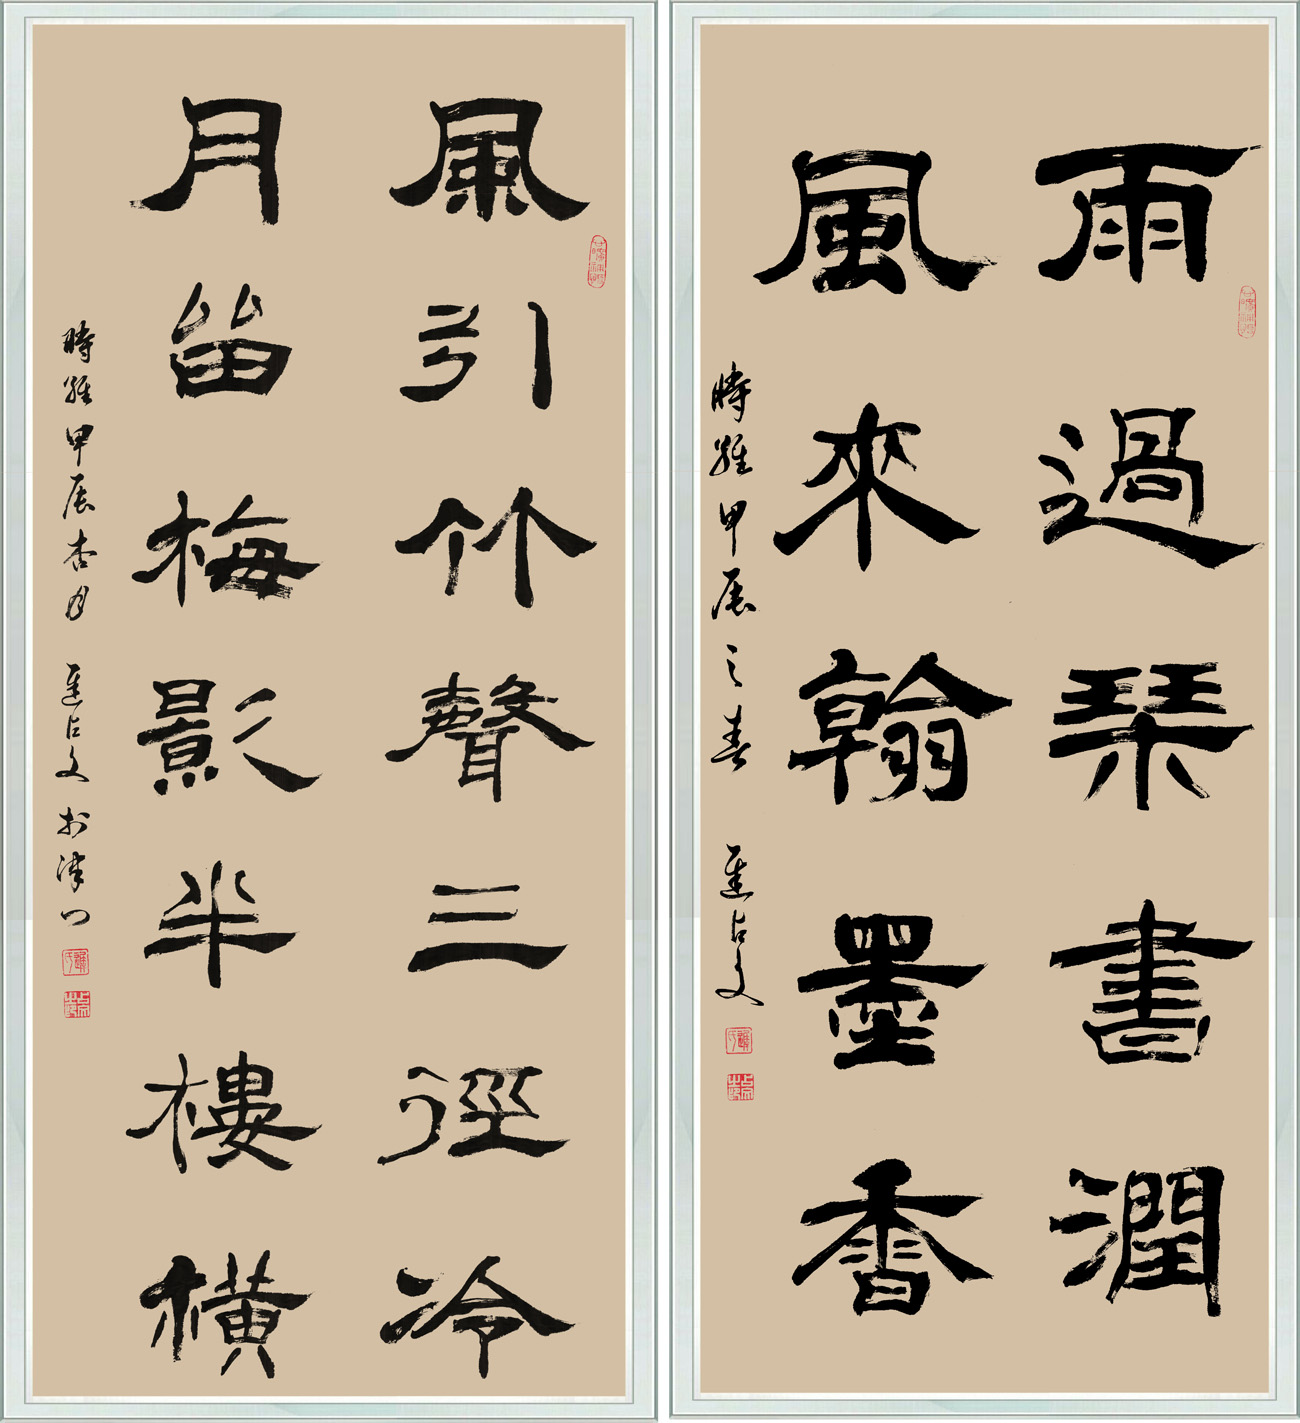 雨過琹書潤
風來翰墨香
時維甲辰之春 進占文
風引竹聲三徑冷
月笛梅影半樓橫
時維甲辰杏月 進占文於津門